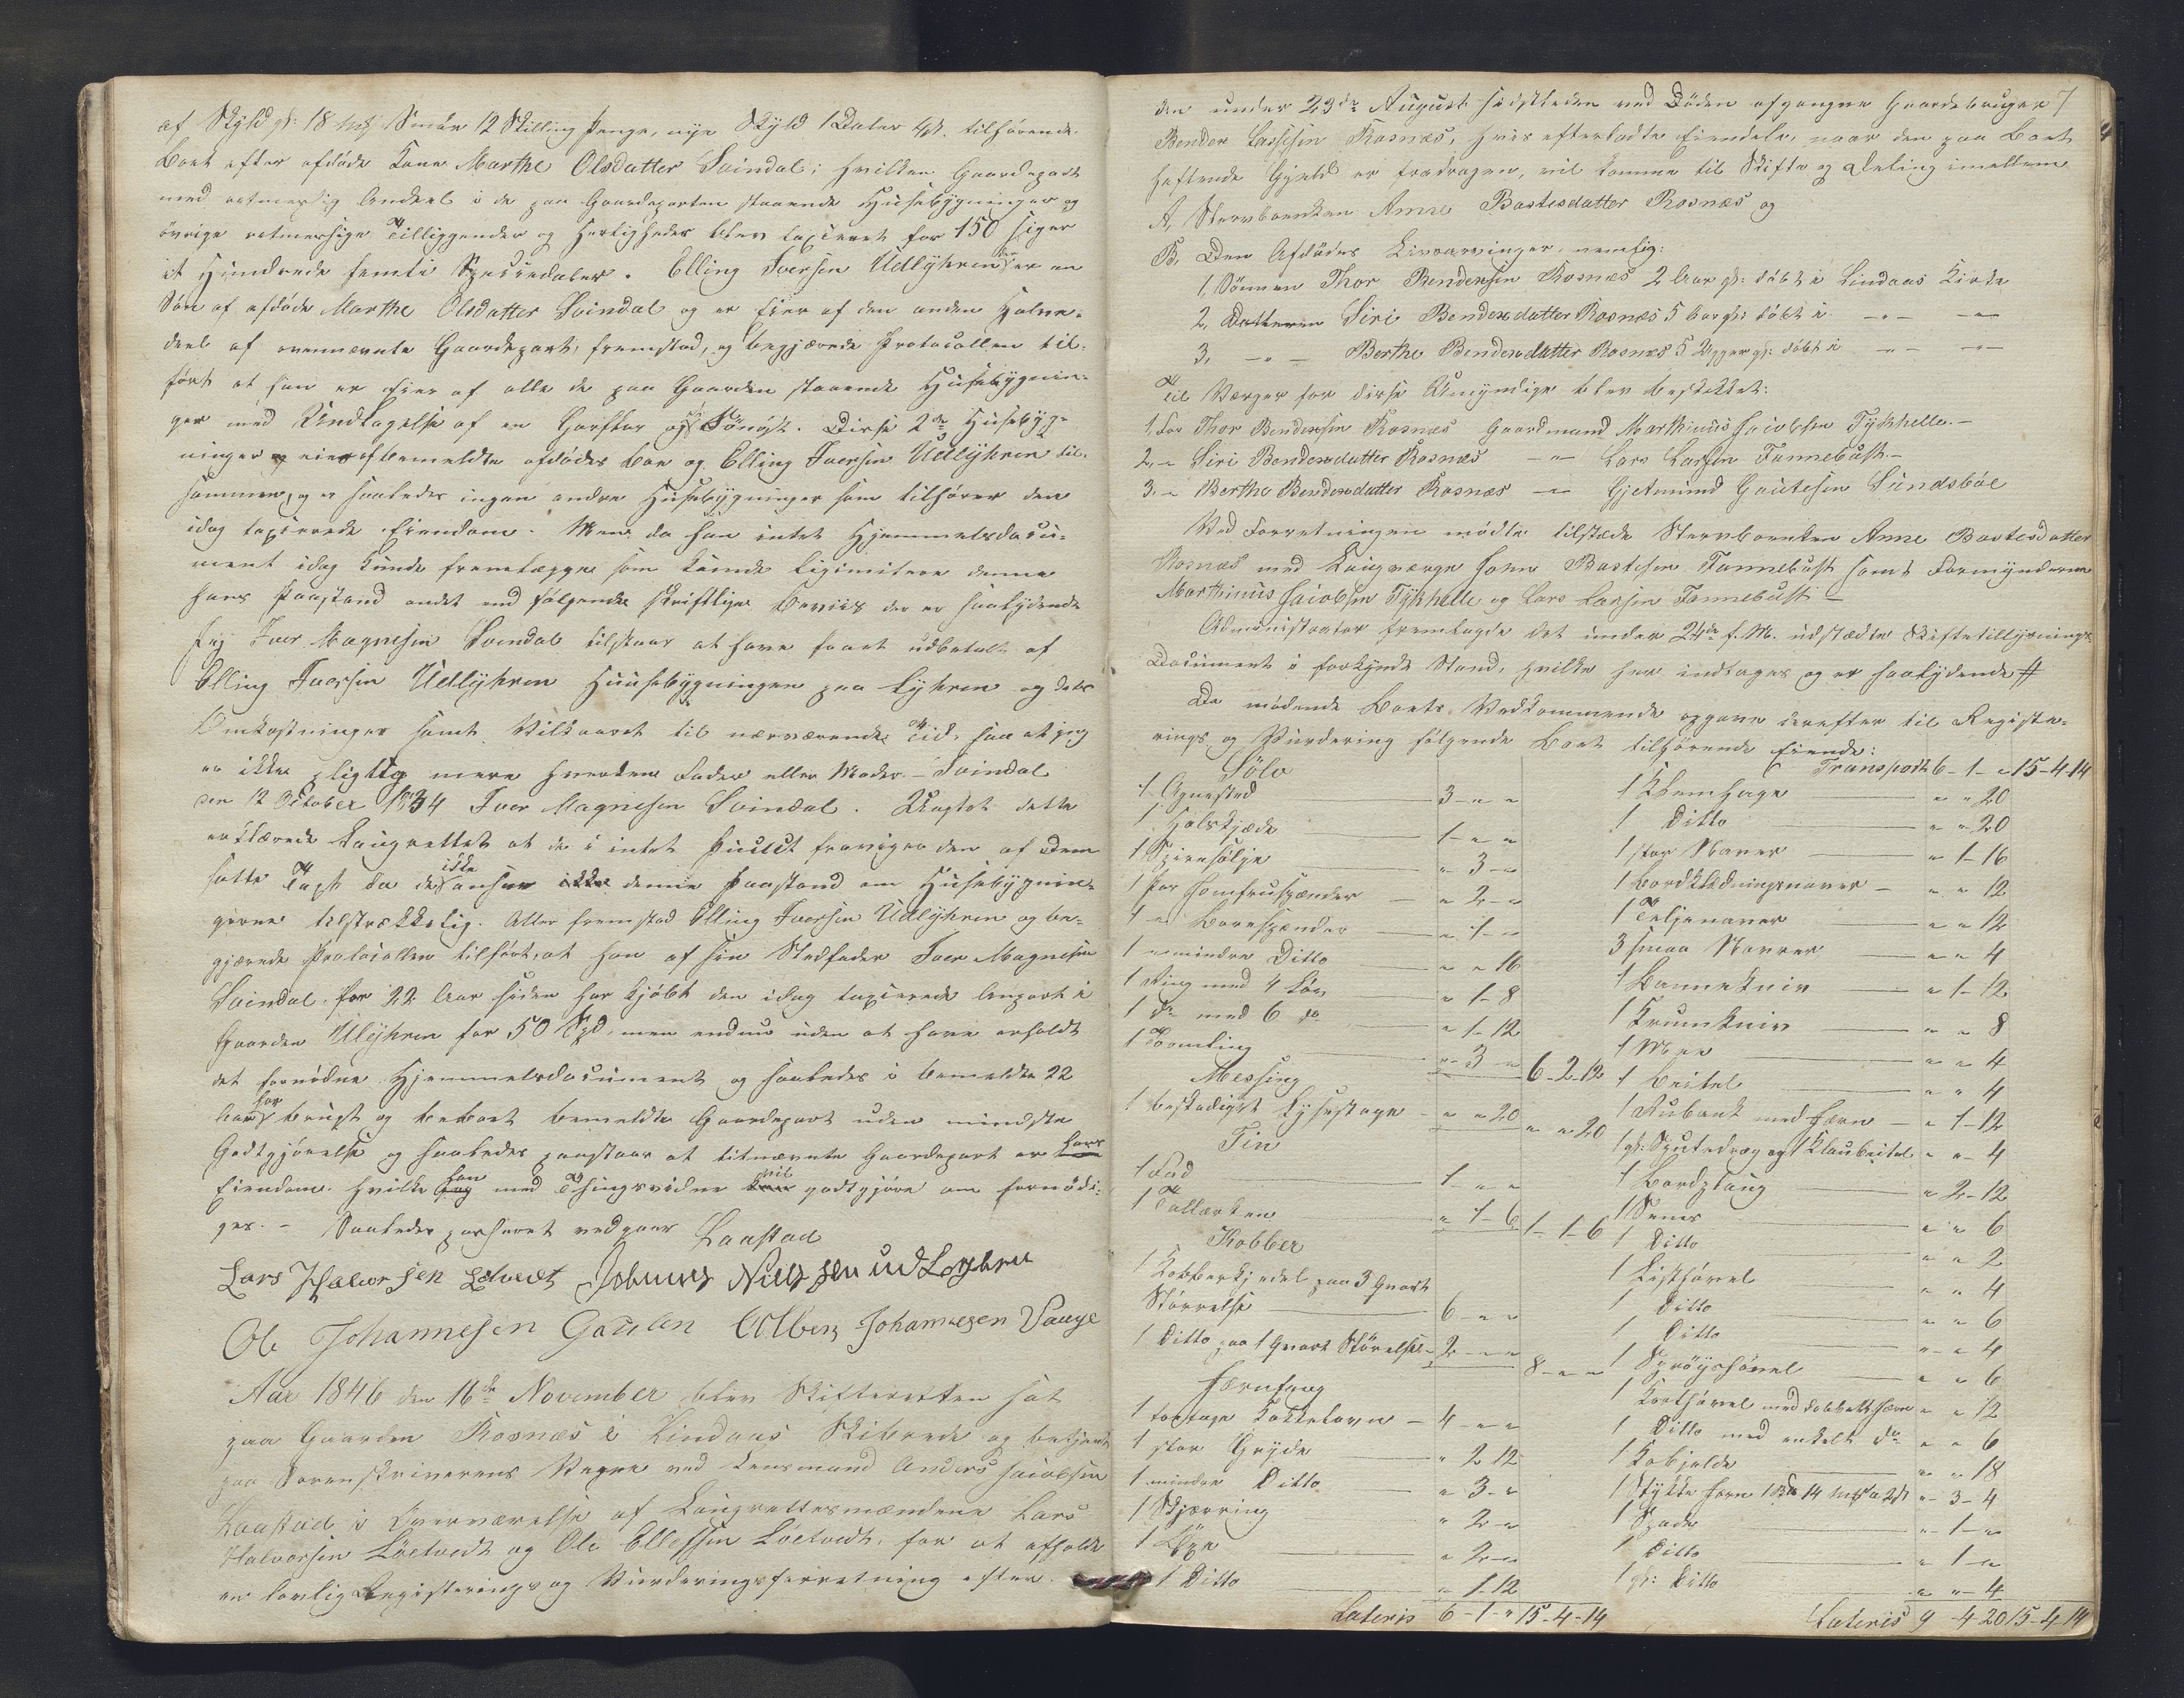 af Skyld gl: 18 Mrk Smør 12 Skilling Penge, nye Skyld 1 Daler 4 ß. tilhørende
Boet efter afdøde Kone Marthe Olsdatter Soindal; hvilken Gaardepart
med retmæssig Andeel i de paa Gaardeparten staaende Husebygninger og
øvrige retmæssige Tilliggender og Herligheder blev taxeret for 150 siger
et Hundrede femti Speciedaler. Elling Iversen Udlykren der er en
Søn af afdøde Marthe Olsdatter Soindal og er Eier af den anden Halve-
deel af ovennævnte Gaardepart, fremstod, og begjærede Protocollen til-
ført at han er Eier af alle de paa Gaarden staaende Husebygnin-
ger med Undtagelse af en og Disse 2de Husebyg-
ninger eies af bemeldte afdødes Boe og Elling Iversen Udlykren til-
sammen, og er saaledes ingen andre Husebygninger som tilhører den
idag taxerede Eiendom. Men da han intet Hjemmelsdocu-
ment idag kunde fremlægge som kunde ligimitere denne
hans Paastand andet end følgende skriftlige Beviis der er saalydende
Jeg Iver Magnesen Soindal tilstaar at have faaet udbetalt af
Elling Iversen Udlykren Huusebygningen paa Lykren og dets
Omkostninger samt Vilkaaret til nærværende Tid, saa at jeg
er ikke pligtig mere hverken Fader eller Moder. - Soindal
den 12 October 1834 Iver Magnesen Soindal. Uagtet dette
erklærede Laugrettet at de i intet Punct fraviger den af dem
satte Taxt da de ikke anseer denne Paastand om Husebygnin-
gerne tilstrækkelig. Atter fremstod Elling Iversen Udlykren og be-
gjærede Protocollen tilført, at han af sin Stedfader Iver Magnesen
Soindal for 22 Aar siden har kjøbt den idag taxerede Anpart i
Gaarden Ulykren for 50 Spd, men endnu uden at have erholdt
det fornødne Hjemmelsdocument og saaledes i bemeldte 22
Aar har brugt og beboet bemeldte Gaardepart uden mindste
Godtgjørelse og saaledes paastaar at titnævnte Gaardepart er hans
Eiendom. hvilke han med Thingsvidne vil godtgjøre om fornødi-
ges. - Saaledes passeret vedgaar Kaastad
Lars Halvorsen Lotvedt Johannes Nielssen udLykren
Ole Johannesen Gaulen Colben Johannesen Vauge
Aar 1846 den 16de November blev Skifteretten sat
paa Gaarden Rosnæs i Lindaas Skibrede og betjent
paa Sorenskriverens Vegne ved Lensmand Anders Jacobsen
Kaastad i Overværelse af Laugrettesmændene Lars
Halvorsen Löetvedt og Ole Ellefsen Loetvedt, for at afholde
en lovlig Registerings og Vurderingsforretning efter
den under 23de August sidstleden ved Døden afgangne Gaardebruger 7
Bender Lassesen Rosnæs, hvis efterladte Eiendele, naar den paa Boet
heftende Gjeld er fradragen, vil komme til Skifte og Deling imellem
A, Stervboenken Anne Bastesdatter Rosnæs og
B, Den Afdødes Livsarvinger, nemlig:
1, Sønnen Thor Bendersen Rosnæs 2 Aar gl: døbt i Lindaas Kirke
2, Datteren Siri Bendersdatter Rosnæs 5 Aar gl: døbt i -"- -"-
3, -"- Berthe Bendersdatter Rosnæs 5 Uger gl: døbt i -"- -"-
Til Værger for disse Umyndige blev beskikket:
1, For Thor Bendersen Rosnæs Gaardmand Marthinus Jacobsen Tykhelle. -
2, " Siri Bendersdatter Rosnæs -"- Lars Larsen Fannebust. -
3, " Berthe Bendersdatter Rosnæs -"- Gjetmund Goutesen Sundsbøe
Ved Forretningen mødte tilstæde Stervboenken Anne Bastesdatter
Rosnæs med Laugværge John Bastesen Fannebust samt Formynderne
Marthinus Jacobsen Tykhelle og Lars Larsen Fannebust -
Administrator fremlagde det under 24de f. M. udstædte Skiftetillysnings
Document i forkyndt Stand, hvilke her indtages og er saalydende #
De mødende Boets Vedkommende opgave derefter til Registe-
rings og Vurdering følgende Boet tilhørende Eiende:
Sølv
1 Agnested 3 - " "
1 Halskjæde 1 - " "
1 Spiresølje " 3 - "
1 Par Jomfruspænder " 2 - "
1 " Bornespænder " 1 - "
1 " mindre Ditto " " 16
1 Ring med 4 Løv " 1 - 8
1 do med 6 do " 1 - 12
1 Tomling " 3 - " 6-2-12
Messing
1 beskadiget Lysestage " " 20 " " 20
Tin
1 Fad 1 - " "
1 Tallerken " 1 - 6 1-1-6
Kobber
1 Kobberkjedel paa 3 Qvart
Størrelse 6 - " "
1 Ditto paa 1 Qvart Størelse 2 - " " 8 - " "
Jernfang
1 toetage Kakkelovn 4 - " "
1 stor Gryde " 2 12
1 mindre Ditto " 3 - "
1 Skjærring " 2 - "
1 Øxe " 2 - "
1 Ditto " 1 - 12
Lateris 6-1-" 15-4-14
Transport 6-1-" 15-4-14
1 " " 20
1 Ditto " " 20
1 stor Naver " 1-16
1 Bordklædningsnaver " " 12
1 Teljenaver " " 12
3 smaa Navrer " " 4
1 Baankniv " 1-12
1 Krumkniv " " 8
1 " " 4
1 Beitel " " 4
1 Rubank med Jern " 1-12
1 gl: og 1 Klaubeitel " " 4
1 Bordplaug " 2-12
1 " " 6
1 Ditto " " 2
1 Listhøvel " " 4
1 Ditto " " 6
1 Ditto " " 4
1 Skrøyshøvel " " 6
1 Korthøvel med dobbelt Jern " " 12
1 Ditto med enkelt do " " 6
1 Kobjelde " " 18
1 Stykke Jern 1 14 " 3-4
1 Spade " 1 - "
1 Ditto " 1 - "
1 gl: Ditto " " 4
Lateris 9-4-20 15-4-14